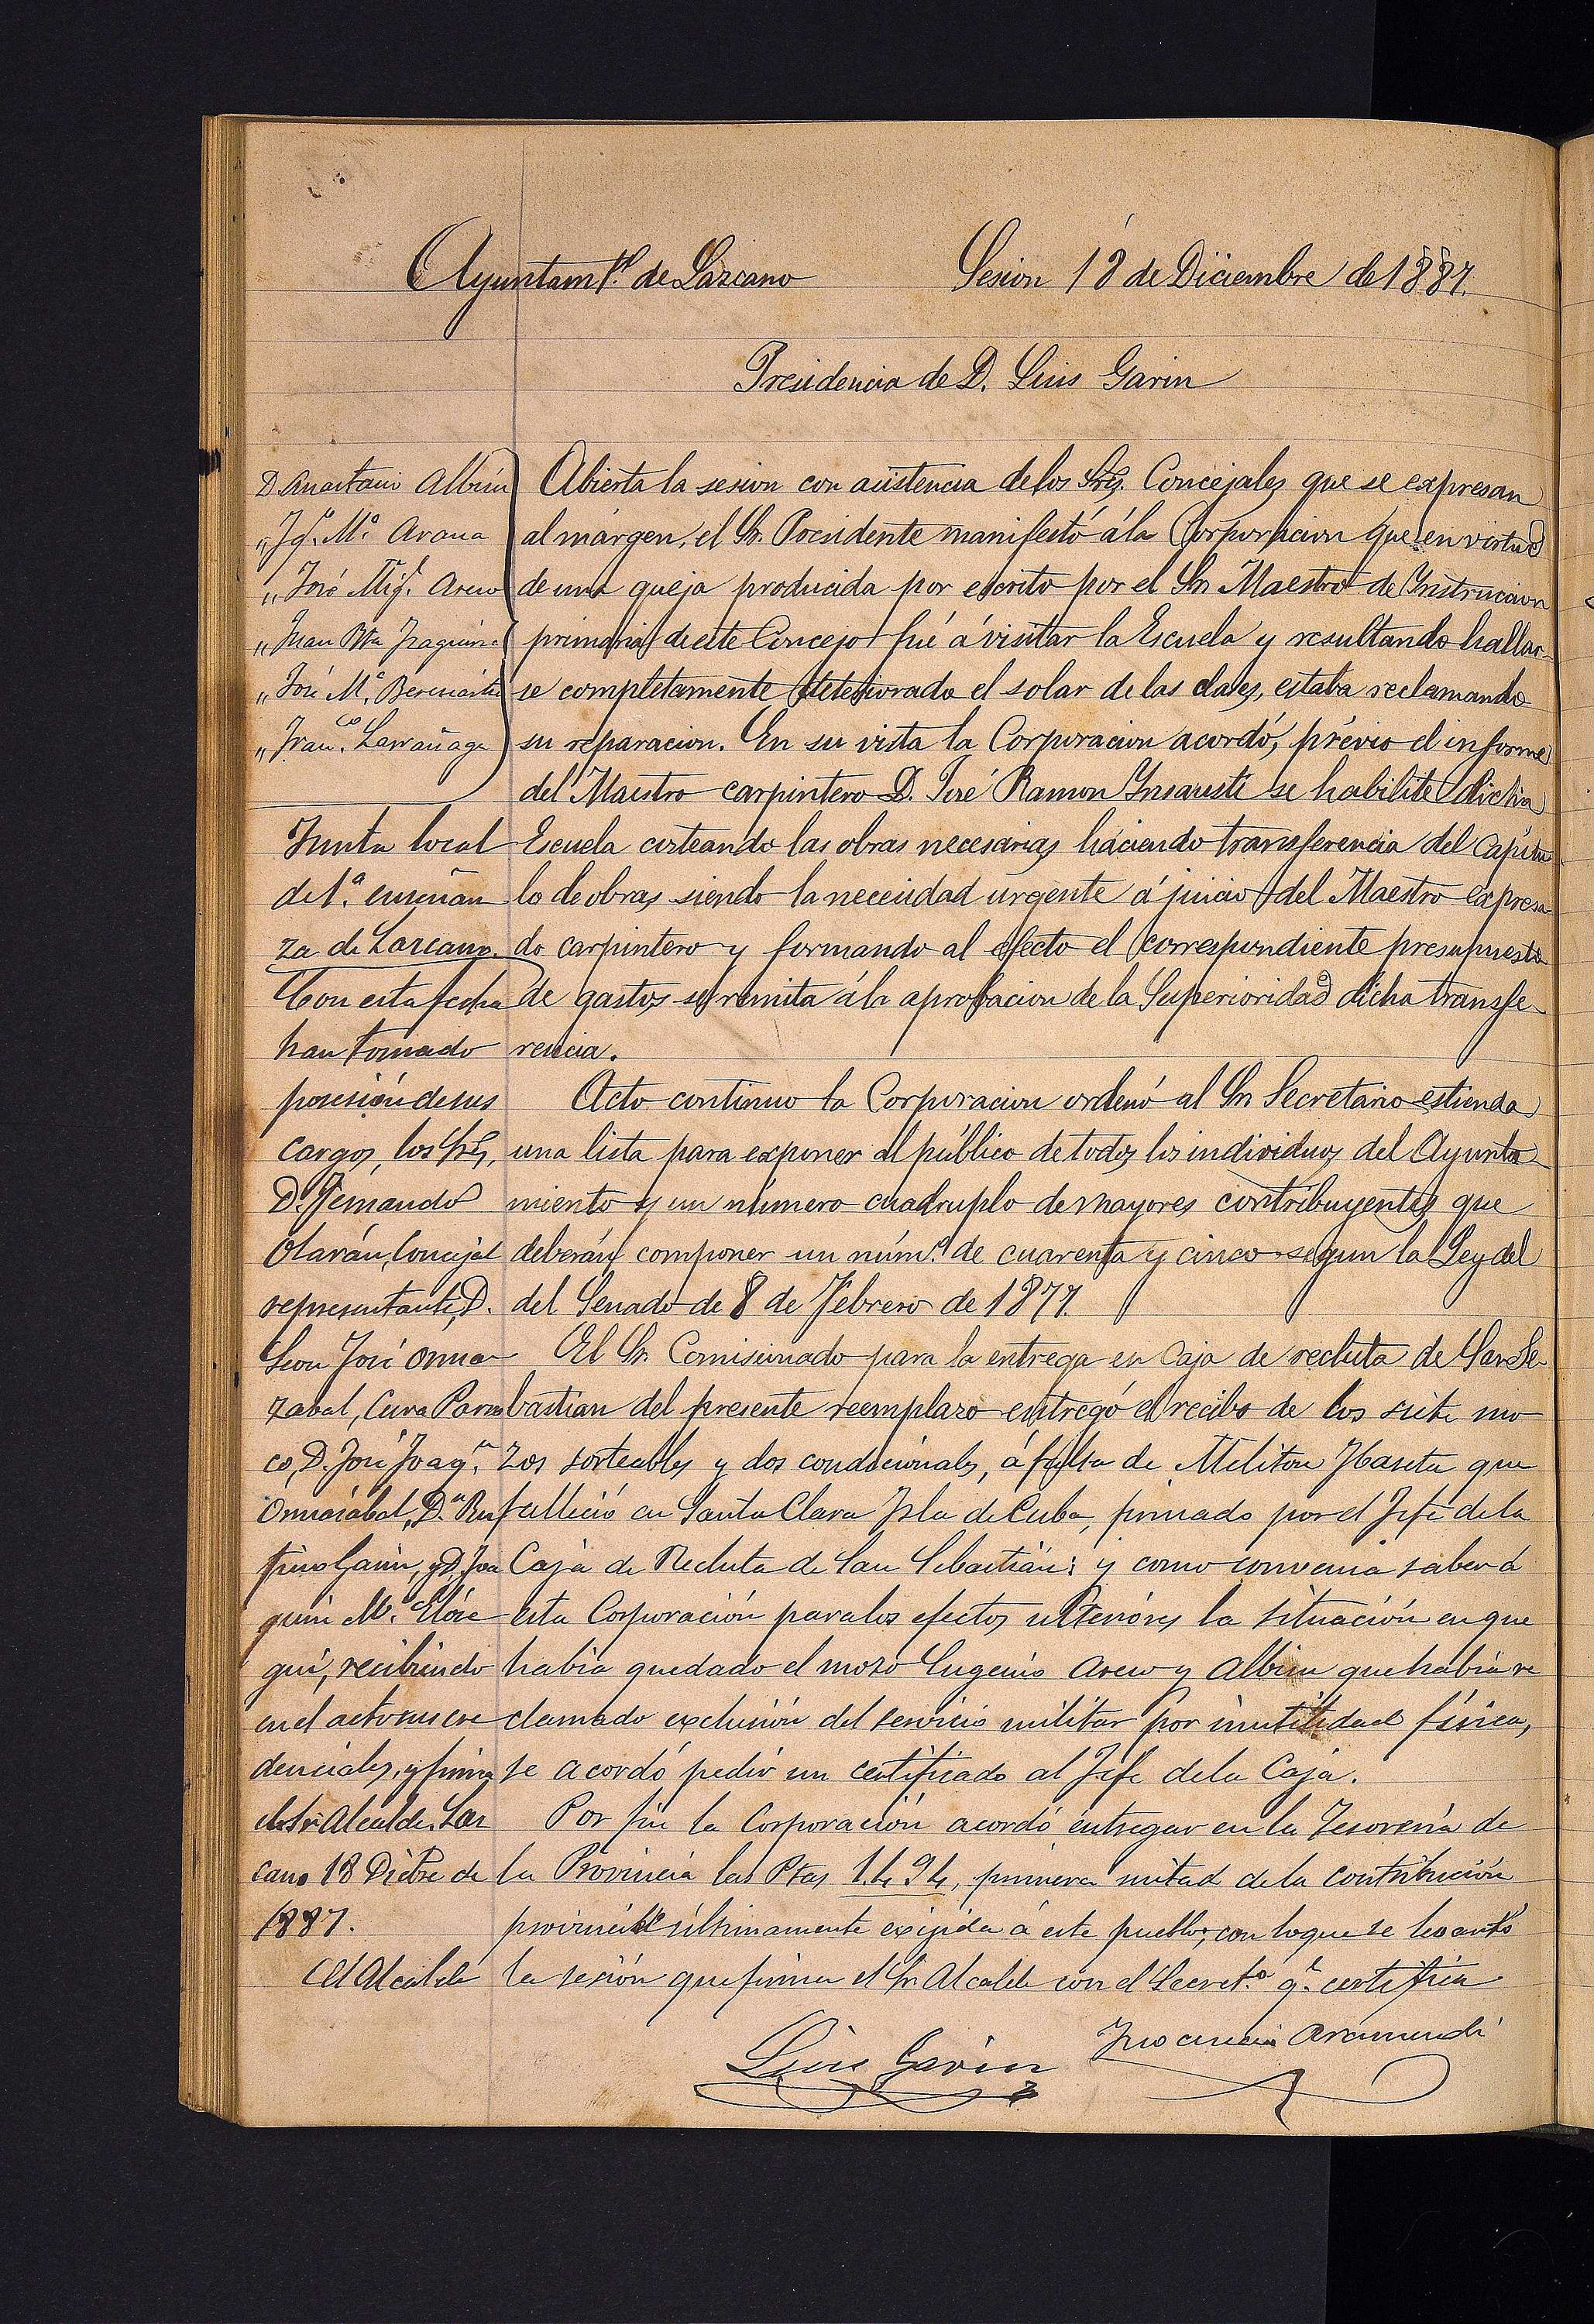 Ayuntamto. de Lazcano
Sesion 18 de Diciembre de 1887.
Presidencia de D. Luis Garin
D. Anastasio Albisu
" Jq. Ma. Arana
" José Migl. Arew
" Juan Bta
" José Ma.
" Franco. Larrañaga
Abierta la sesion con asistencia de los Sres. Concejales que se expresan
al márgen, el Sr. Presidente manifestó á la Corporacion que en virtud
de una queja producida por escrito por el Sr. Maestro de Instruccion
primaria de este Concejo fué á visitar la Escuela y resultando hallar-
se completamente deteriorado el solar de las clases, estaba reclamando
su reparacion. En su vista la Corporacion acordó, prévio el informe
del Maestro carpintero D. José Ramon Insausti se habilite dicha
Escuela costeando las obras necesarias haciendo transferencia del Capitu
lo de obras siendo la necesidad urgente á juicio del Maestro expresa-
do carpintero y formando al efecto el correspondiente presupuesto
de gastos se remita á la aprobacion de la Superioridad dicha transfe-
rencia.
Acto continuo la Corporacion ordenó al Sr. Secretario estienda
una lista para exponer al público de todos los individuos del Ayunta-
miento y un número cuadruplo de mayores contribuyentes que
deberán componer un núm.o de cuarenta y cinco segun la Ley del
del Senado de 8 de Febrero de 1877.
El Sr. Comisionado para la entrega en Caja de recluta de San Se-
bastian del presente reemplazo entregó el recibo de los siete mo-
zos sorteables y dos condicionales, á falta de Meliton que
falleció en Santa Clara Isla de Cuba, firmado por el Jefe de la
Caja de Recluta de San Sebastián; y como convenia saber á
esta Corporación para los efectos ulteriores la situación en que
habia quedado el mozo Eugenio Arew y Albisu que habia re
clamado exclusión del servicio militar por inutilidad física,
se acordó pedir un certificado al Jefe de la Caja.
Por fin la Corporación acordó entregar en la Tesorería de
la Provincia las Ptas 1.494, primera mitad de la contribución
provincial últimamente exijida á este pueblo; con lo que se levantó
la sesión que firma el Sr. Alcalde con el Secreto. q.e certifica
Junta local
de 1.a enseñan
za de Lazcano.
Con esta fecha
han tomado
posesión de sus
cargos, los Sres,
D. Fernando
Olarán, Concejal
representante, D.
Leon José Orma
zabal, Cura Parro
co, D. José Joaqn.
Ormazabal, Dn. Ru
fino Garin, y D. Joa
quin Ma. Elóse
gui, recibiendo
en el acto sus cre
denciales, y firma
el Sr. Alcalde. Laz
cano 18 Dicbre de
1887.
El Alcalde
Luis Garin
Inocencio Aramendi